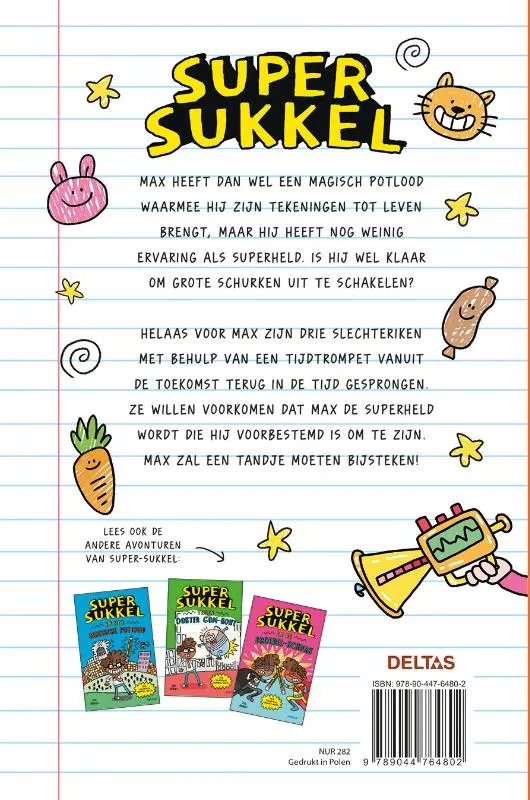 SUPER
SUKKEL
MAX HEEFT DAN WEL EEN MAGISCH POTLOOD
WAARMEE HIJ ZIJN TEKENINGEN TOT LEVEN
BRENGT, MAAR HIJ HEEFT NOG WEINIG
ERVARING ALS SUPERHELD. IS HIJ WEL KLAAR
OM GROTE SCHURKEN UIT TE SCHAKELEN?
HELAAS VOOR MAX ZIJN DRIE SLECHTERIKEN
MET BEHULP VAN EEN TIJDTROMPET VANUIT
DE TOEKOMST TERUG IN DE TIJD GESPRONGEN.
ZE WILLEN VOORKOMEN DAT MAX DE SUPERHELD
WORDT DIE HIJ VOORBESTEMD IS OM TE ZIJN.
MAX ZAL EEN TANDJE MOETEN BIJSTEKEN!
LEES OOK DE
ANDERE AVONTUREN
VAN SUPER-SUKKEL:
SUPER
SUKKEL
EN HET
MAGISCHE POTLOOD
SUPER
SUKKEL
TEGEN
DOKTER GOM-BOT
SUPER
SUKKEL
EN DE
DELTAS
ISBN: 978-90-447-6480-2
9 789044 764802
NUR 282
Gedrukt in Polen